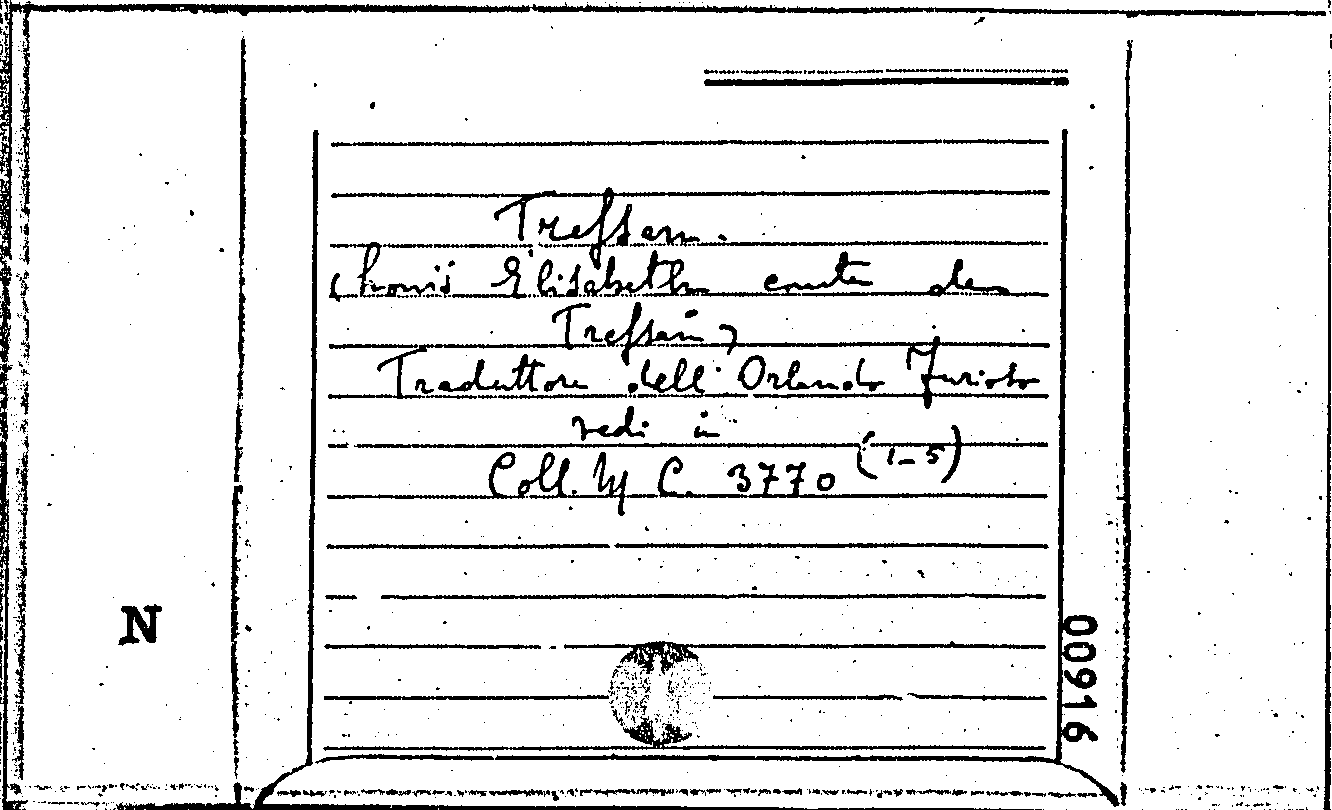 Trefsan.
(Louis Elisabeth comte de
Trefsan)
Traduttore dell'Orlando Furioso
vedi in
Coll. M C. 3770 (1-5)
N
00916